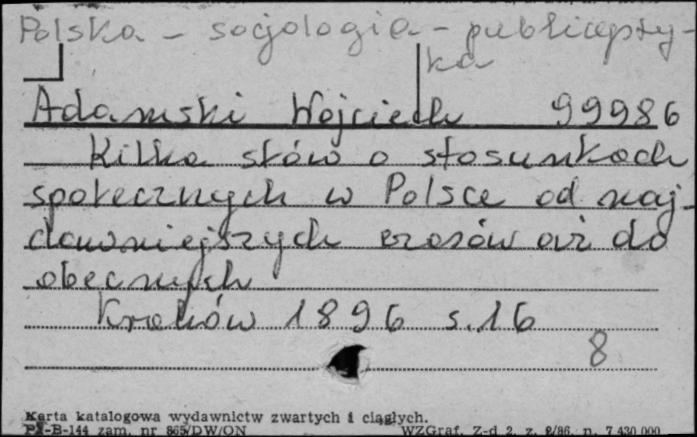 Polska - socjologia - publicysty-
ka
Adamski Wojciech 99986
Kilka słów o stosunkach
społecznych w Polsce od naj-
dawniejszych czasów aż do
obecnych
Kraków 1896 s. 16
8
Karta katalogowa wydawnictw zwartych i ciągłych.
Pu-B-144 zam. nr 865/DW/ON WZGraf. Z-d 2, z. 2/86, n. 7 430 000